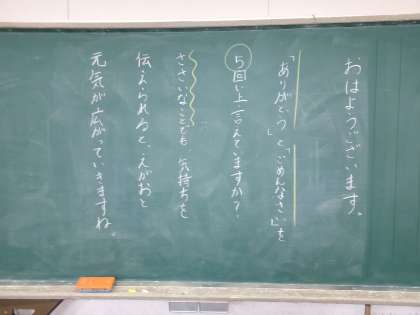 おはようございます。
「ありがとう」と「ごめんなさい」を
5回以上言えていますか？
ささいなことでも、気持ちを
伝えられると、えがおと
元気が広がっていきますね。